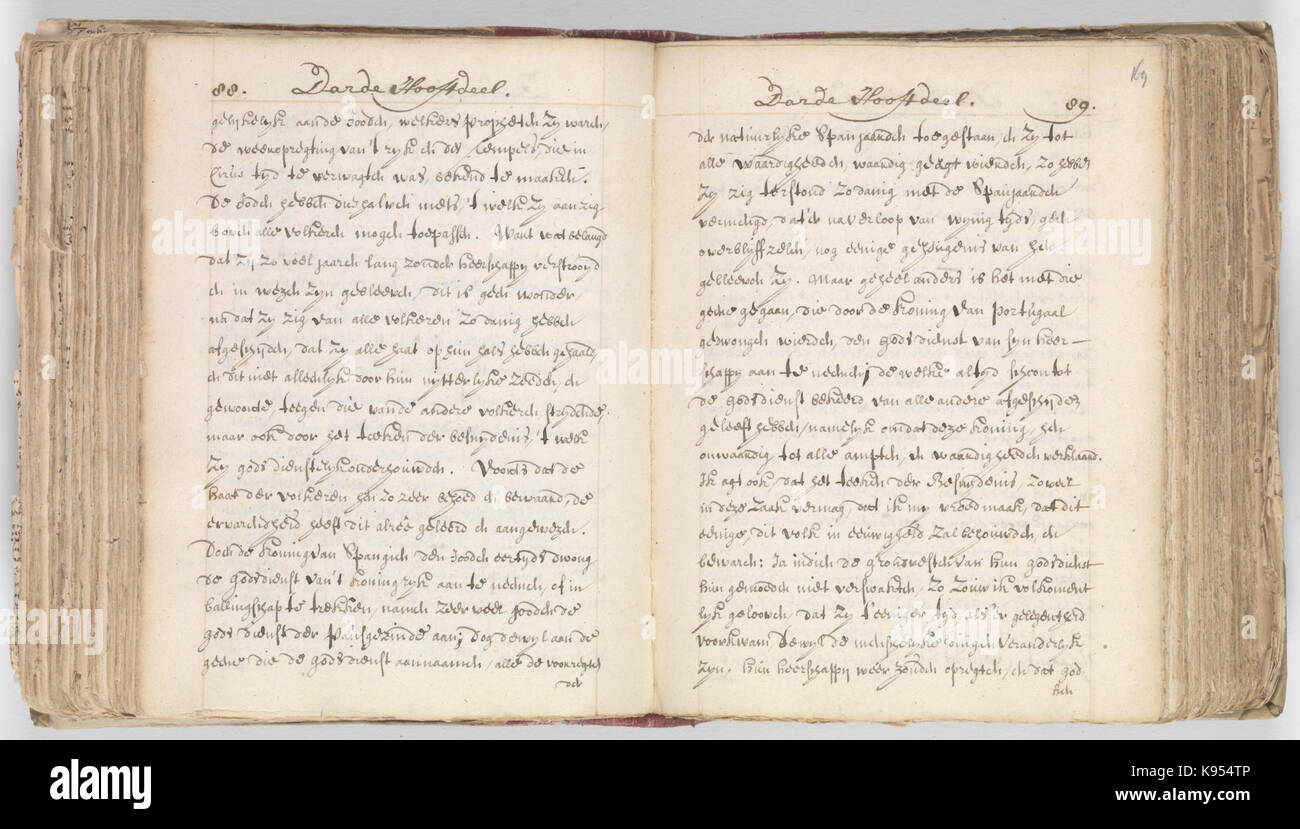 88. Darde Hooftdeel.
gelijkelijk aan de Jooden, welkers propheten zy waren,
de weeropregting van 't ryk en des Tempels, die in
Cirus tyd te verwagten was, bekend te maaken.
De Jooden hebben dieshalven niets, 't welk zy aan zig
boven alle volkeren mogen toepassen. Want wat belangd
dat zy zo veel jaaren lang zonder heerschappy verstrooyd
en in wezen zyn gebleeven, dit is geen wonder
nadat zy zig van alle volkeren zodanig hebben
afgescheyden, dat zy alle haat op hun hals hebben gehaald,
en dit niet alleenlyk door hun uytterlyke zeeden, en
gewoonte, teegen die van de andere volkeren strydende,
maar ook door het teeken der besnydenis, 't welk
zy godsdienstelyk onderhouwden. Voorts dat de
haat der volkeren hen zo zeer behoed en bewaard, de
ervarendheid heeft dit alreê geleerd en aangewezen.
Doen de Koning van Spangien den Jooden eertyds dwong
de godsdienst van 't koningryk aan te neemen, of in
ballingschap te trekken, namen zeer veel Jooden de
godsdienst der Pausgezinde aan; dog dewyl aan de
geene die de godsdienst aannaamen, alle de voorregten
der
169
Darde Hooftdeel. 89.
der natuurlyke Spanjaarden toegestaan en zy tot
alle waardigheeden, waardig geagt wierden, zo hebben
zy zig terstond zodanig met de Spanjaarden
vermengd, dat'er na verloop van wynig tyds, geen
overblyffzelen, nog eenige geheugenis van hen
gebleeven zy. Maar geheel anders is het met die
geene gegaan, die door de Koning van Portugaal
gedwongen wierden, den godsdienst van syn heer-
schappy aan te neemen, de welke altyd schoon tot
de godsdienst bekeerd, van alle andere afgescheyden
geleeft hebben, namelyk omdat deze koning, hen
onwaardig tot alle ampten, en waardigheeden verklaard.
Ik agt ook, dat het teeken der Besnydenis, zo veel
in deze zaak vermag, dat ik my vreed maak, dat dit
eenige, dit volk in eeuwigheid zal behouwden, en
bewaren: Ja indien de grondvesten van hun godsdienst
hun gemoeden niet verswakten, zo zouw ik volkoment
lyk gelooven, dat zy t'eeniger tyd, als'er gelegentheid
voorkwam, dewyl de menschelyke dingen veranderlyk
zyn, hun heerschappy weer zouden opregten, en dat god
hen
alamy
Image ID: K954TP
www.alamy.com